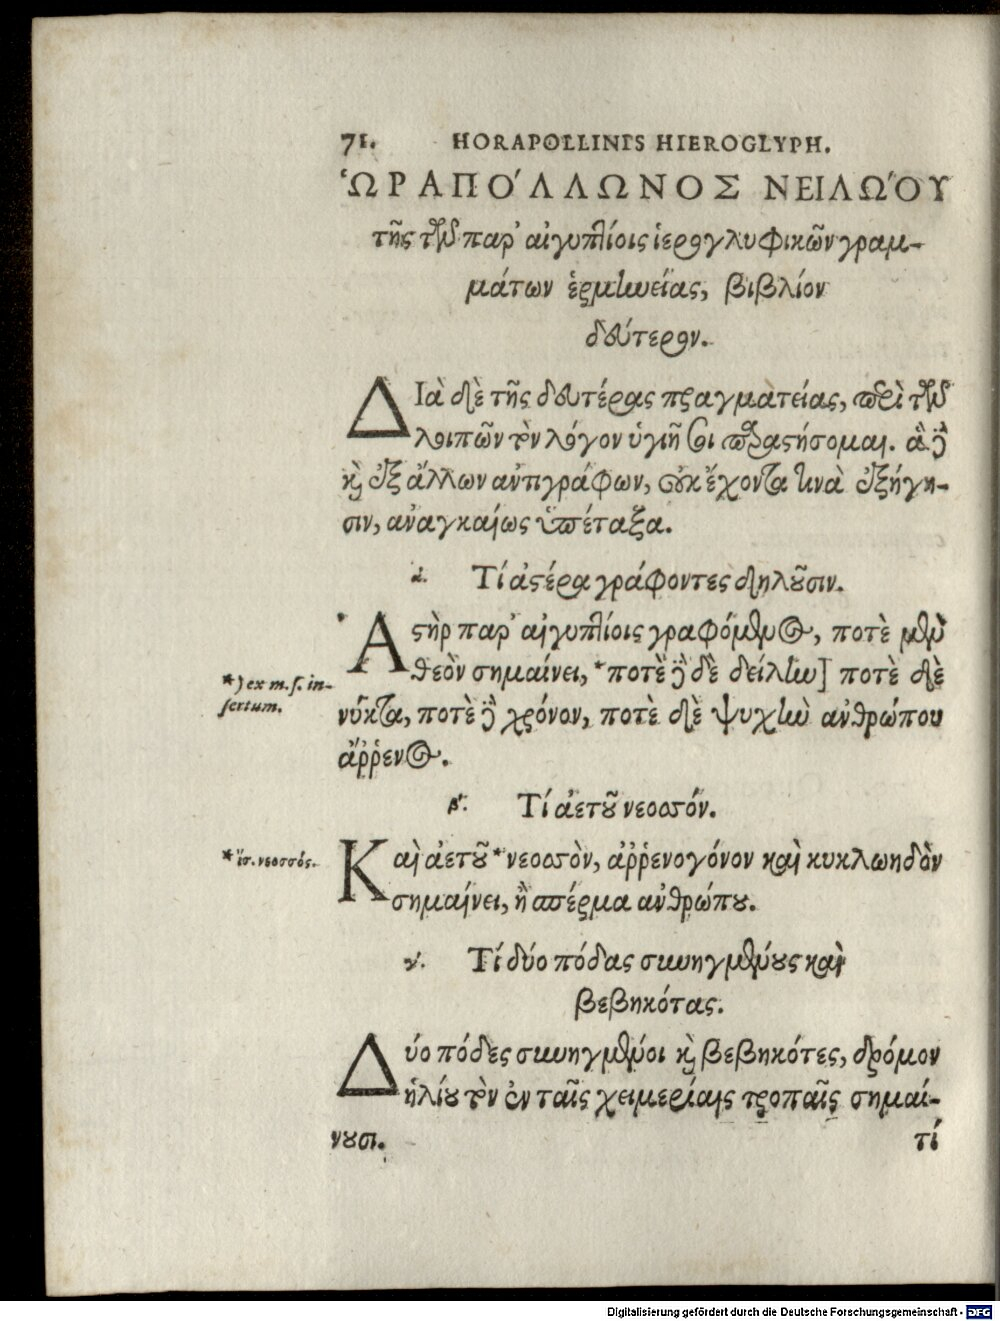 71. HORAPOLLINIS HIEROGLYPH.
ὩΡΑΠΌΛΛΩΝΟΣ ΝΕΙΛΏΟΥ
τῆς τῶν παρ' αἰγυπτίοις ἱερογλυφικῶν γραμ-
μάτων ἑρμηνείας, βιβλίον
δεύτερον.
ΔΙὰ δὲ τῆς δευτέρας πραγματείας, περὶ τῶν
λοιπῶν τὸν λόγον ὑγιῆ σοι παραστήσομαι. ἃ δὲ
καὶ ἐξ ἄλλων ἀντιγράφων, οὐκ ἔχοντα τινὰ ἐξήγη-
σιν, ἀναγκαίως ὑπέταξα.
α. Τί ἀστέρα γράφοντες δηλοῦσιν.
Ἀστὴρ παρ' αἰγυπτίοις γραφόμενος, ποτὲ μὲν
θεὸν σημαίνει, *ποτὲ δὲ δὲ δείλην] ποτὲ δὲ
*) ex m.s. in-
sertum.
νύκτα, ποτὲ δὲ χρόνον, ποτὲ δὲ ψυχὴν ἀνθρώπου
ἄῤῥενος.
β'. Τί ἀετοῦ νεοσσόν.
Καὶ ἀετοῦ *νεοσσὸν, ἀῤῥενογόνον καὶ κυκλωηδὸν
* ἴσ. νεοσσός.
σημαίνει, ἢ σπέρμα ἀνθρώπου.
γ'. Τί δύο πόδας συνηγμένους καὶ
βεβηκότας.
Δύο πόδες συνηγμένοι καὶ βεβηκότες, δρόμον
ἡλίου τὸν ἐν ταῖς χειμερίαις τροπαῖς σημαί-
νουσι.
τί
Digitalisierung gefördert durch die Deutsche Forschungsgemeinschaft - DFG